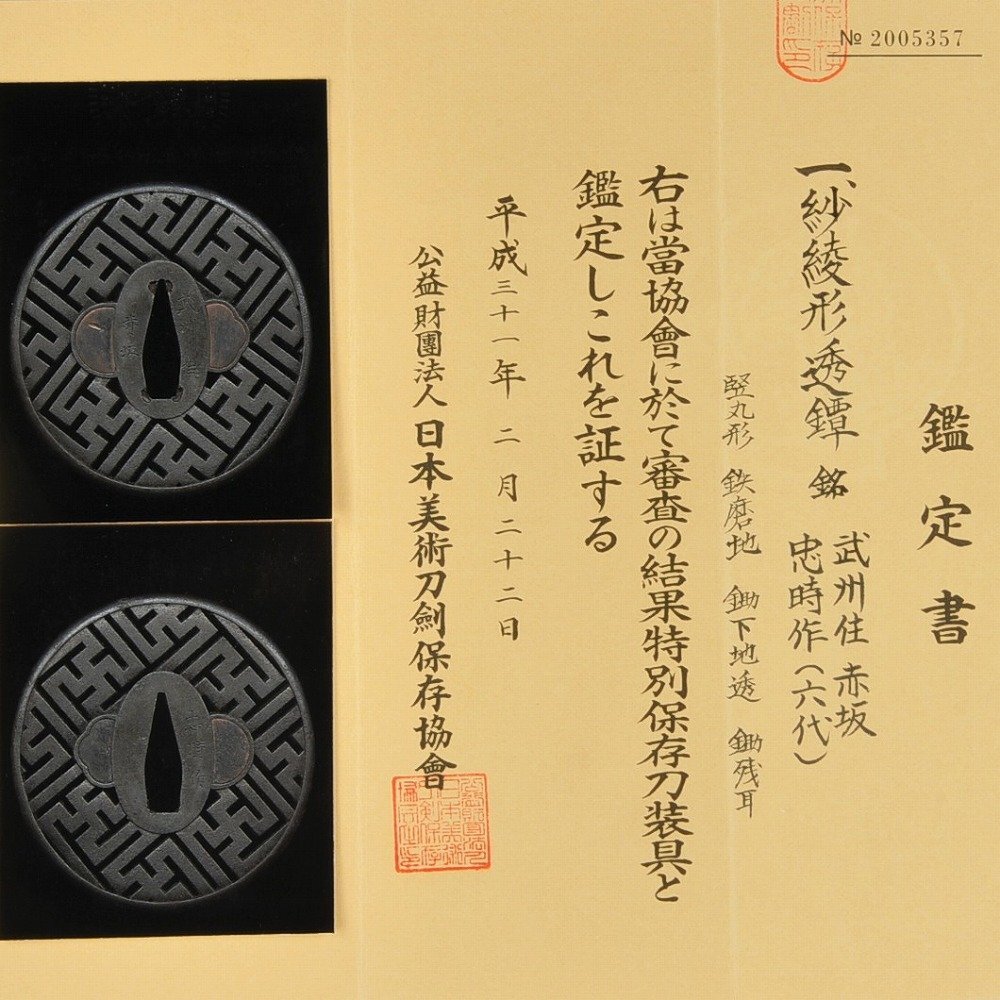 № 2005357
鑑定書
一、紗綾形透鐔 銘 武州住赤坂
忠時作(六代)
竪丸形 鉄磨地 鋤下地透 鋤残耳
右は當協會に於て審査の結果特別保存刀装具と
鑑定しこれを証する
平成三十一年 二月二十二日
公益財團法人 日本美術刀劍保存協會